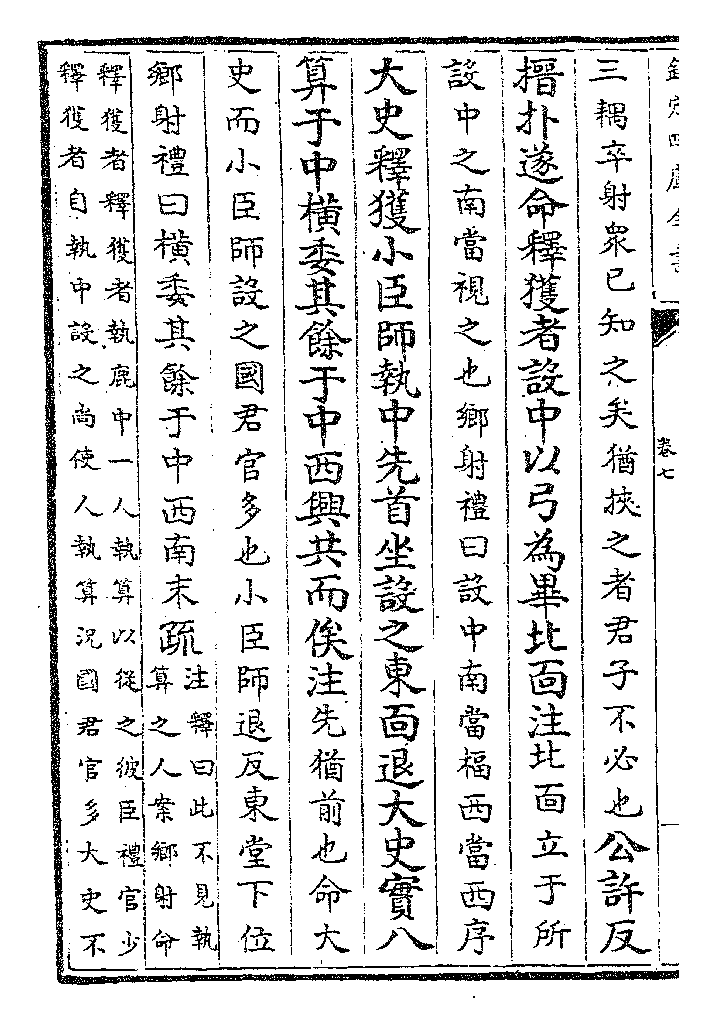 欽定四庫全書
卷七
三耦卒射眾已知之矣猶挾之者君子不必也公許反
搢扑遂命釋獲者設中以弓為畢北面注北面立于所
設中之南當視之也鄉射禮曰設中南當楅西當西序
大史釋獲小臣師執中先首坐設之東面退大史實八
算于中橫委其餘于中西興共而俟注先猶前也命大
史而小臣師設之國君官多也小臣師退反東堂下位
鄉射禮曰橫委其餘于中西南末疏注釋曰此不見執
算之人案鄉射命
釋獲者釋獲者執鹿中一人執算以從之彼臣禮官少
釋獲者自執中設之尚使人執算況國君官多大史不